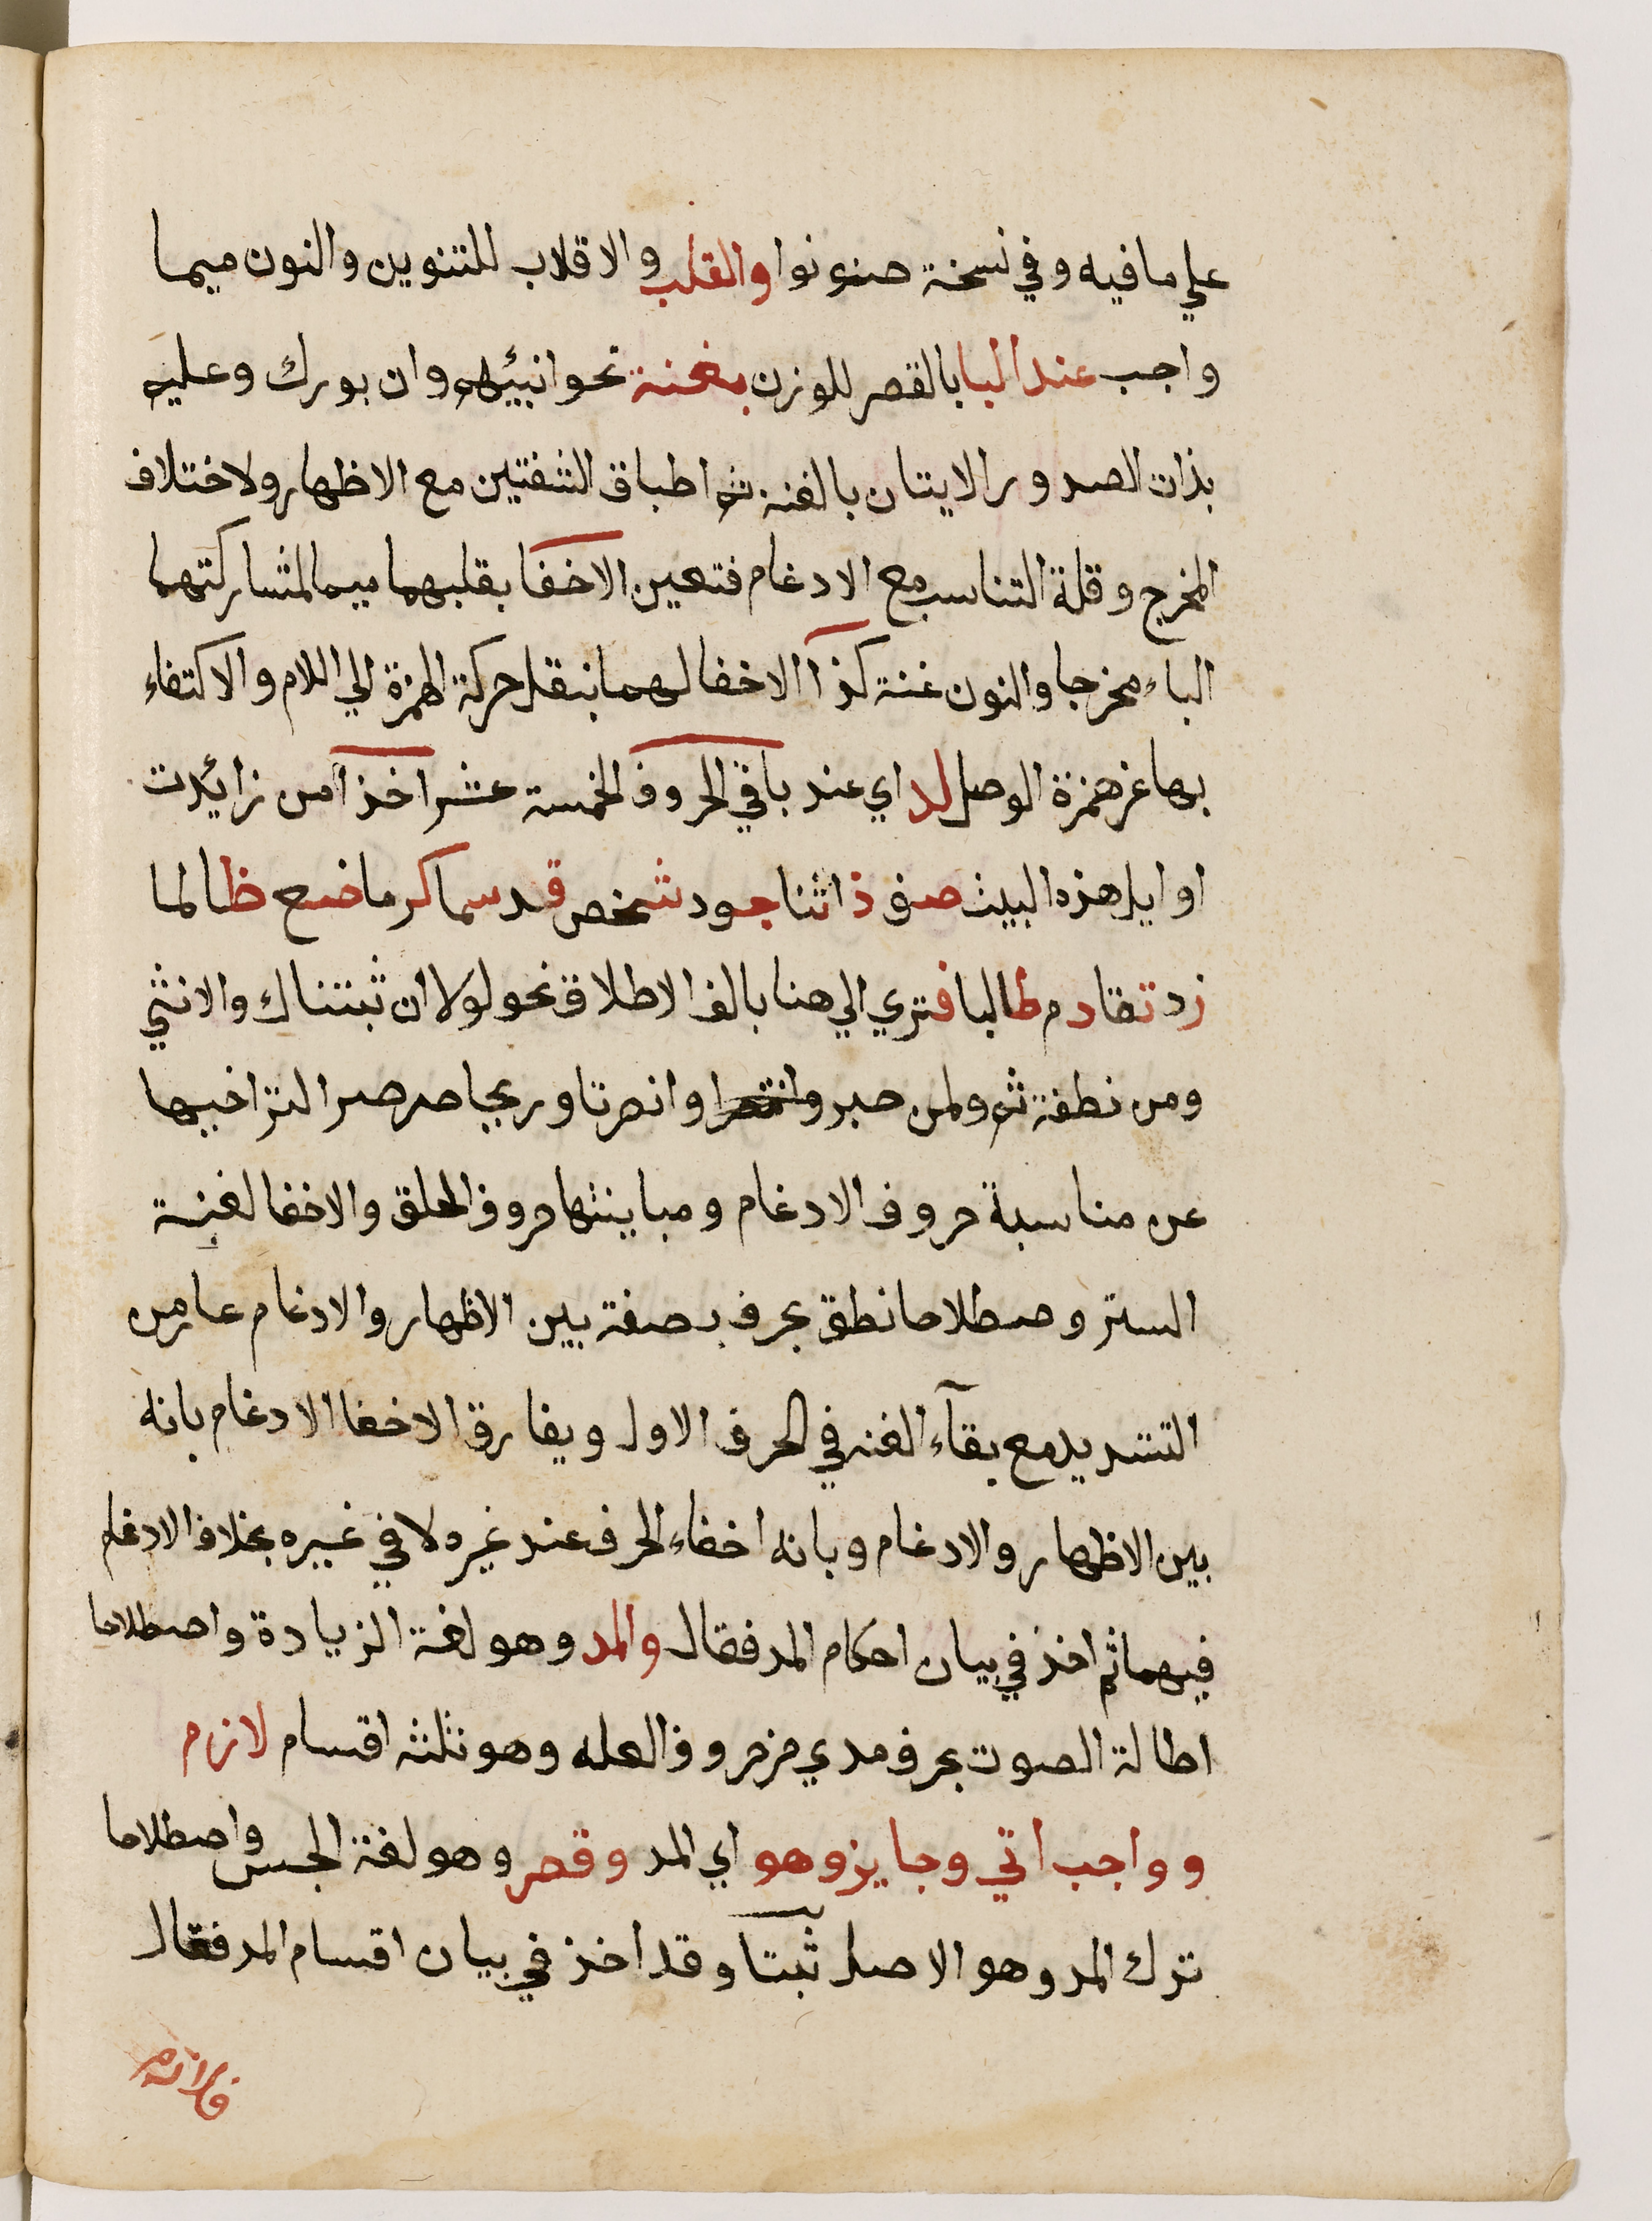 علي ما فيه وفي نسخة صنونوا والقلب والاقلاب للتنوين والنون ميما
واجب عند البا بالقصر للوزن بغنة نحو انبيئهم وان بورك وعليم
بذات الصدور الايتان بالغنه ثم اطباق الشفتين مع الاظهار ولاختلاف
المخرج وقلة التناسب مع الادغام فتعين الاخفا بقلبهما ميما لمشاركتهما
الباء مخرجا والنون غنة كذا الاخفا لهما بنقل حركة الهمزة الي اللام والاكتفاء
بها عن همزة الوصل لدا اي عند باقي الحروف الخمسة عشر اخذا من زائدت
اوايل هذه البيت صف ذا ثنا جود شخص قد سما كرما ضع ظالما
زد تقا دم طالبا فتري الي هنا بالف الاطلاق نحو لولا ان ثبتناك والانثي
ومن نطفة ثم ولمن صبر وانتصرا وانصرنا وريحا صرصرا لتراخيها
عن مناسبة حروف الادغام ومباينتها حروف الحلق والاخفا لغة
الستر وصطلاحا نطق بحرف بصفة بين الاظهار والادغام عار من
التشديد مع بقآء الغنه في الحرف الاول ويفارق الاخفا الادغام بانه
بين الاظهار والادغام وبانه اخفاء الحرف عند غيره لا في غيره بخلاف الادغام
فيهما ثم اخذ في بيان احكام المد فقال والمد وهو لغة الزيادة واصطلاحا
اطالة الصوت بحرف مدي من حروف العله وهو ثلثه اقسام لازم
وواجب اتي وجايز وهو اي المد وقصر وهو لغة الحبس واصطلاحا
ترك المد وهو الاصل ثبتا وقد اخذ في بيان اقسام المد فقال
فلازم